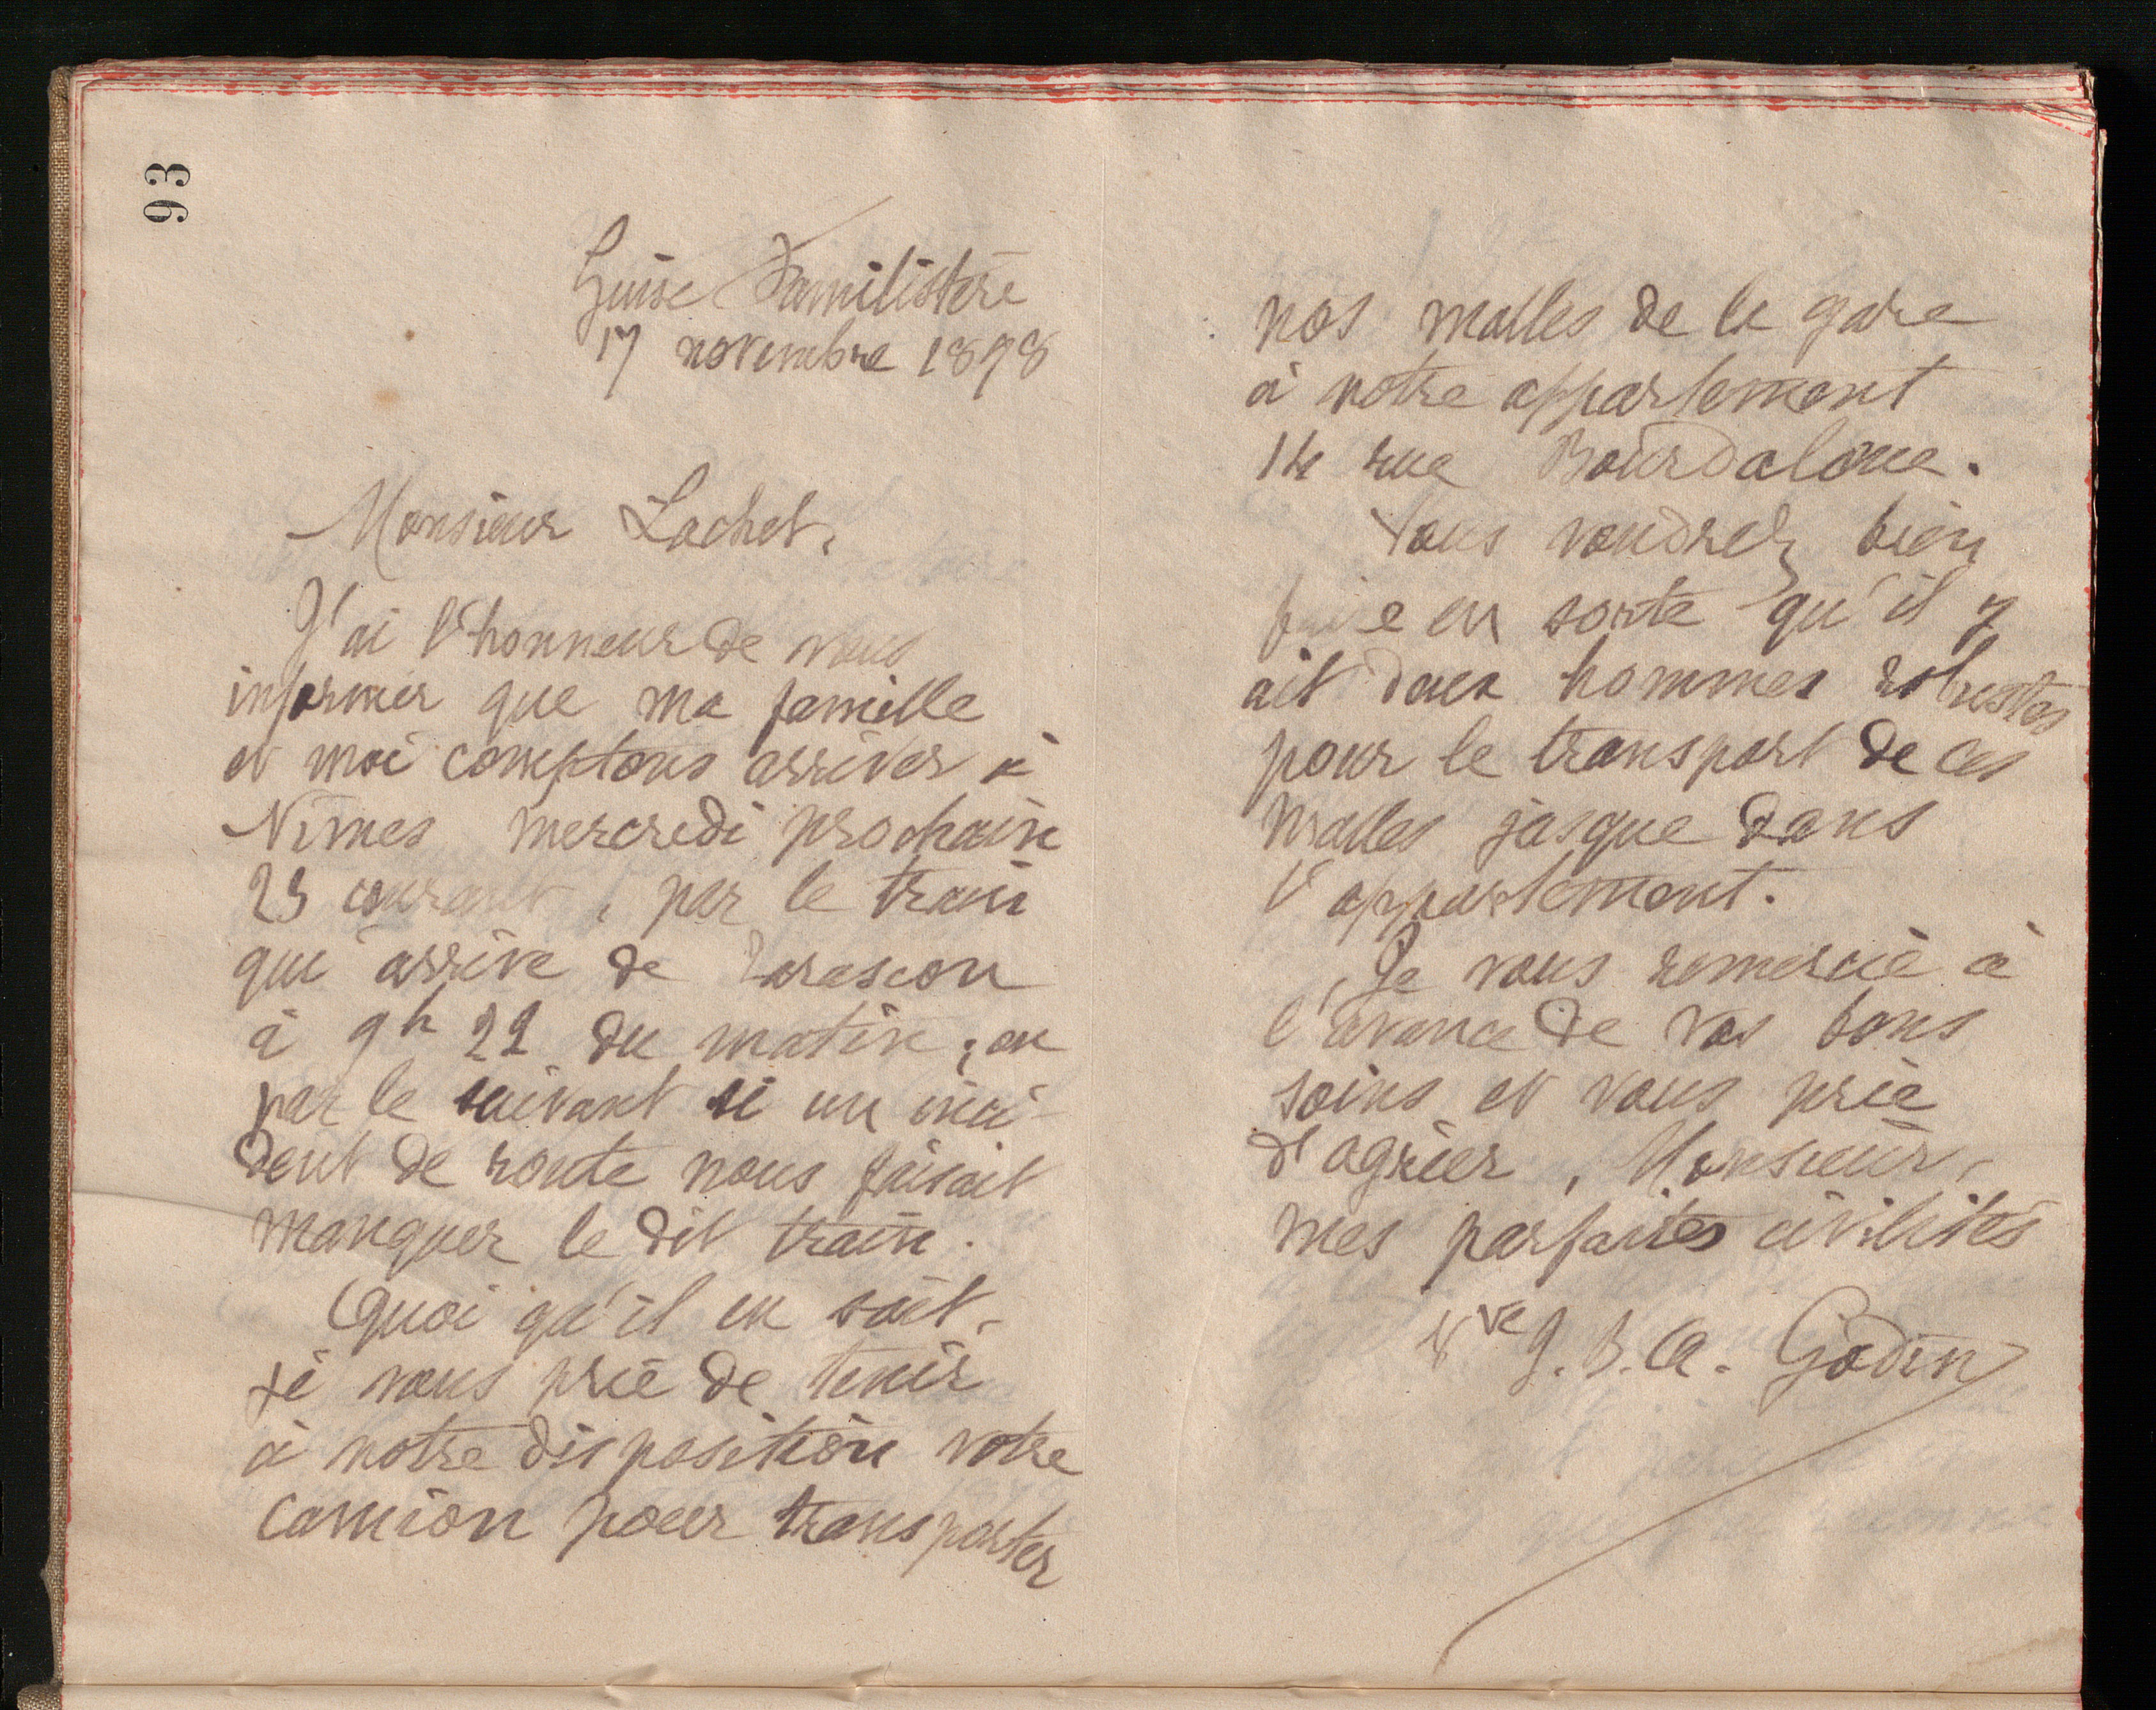 93
Guise Familistère
17 novembre 1898
Monsieur Lachet,
J'ai l'honneur de vous
informer que ma famille
et moi comptons arriver à
Nîmes mercredi prochain
23 courant, par le train
qui arrive de Tarascon
à 9h 22 du matin; ou
par le suivant si un inci-
dent de route nous faisait
manquer le dit train.
Quoi qu'il en soit,
je vous prie de tenir
à notre disposition votre
camion pour transporter
nos malles de la gare
à notre appartement
14 rue Bourdaloue.
Vous voudrez bien
faire en sorte qu'il y
ait deux hommes robustes
pour le transport de ces
malles jusque dans
l'appartement.
Je vous remercie à
l'avance de vos bons
soins et vous prie
d'agréer, Monsieur,
mes parfaites civilités
Vve J. B. A. Godin